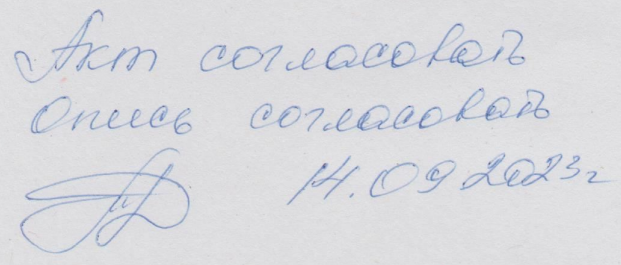 Акт согласовать
Опись согласовать
14.09 2023г